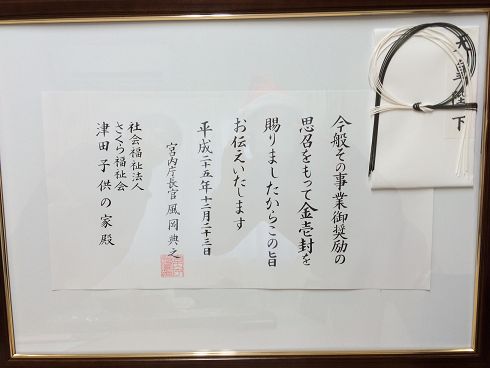 天皇陛下
今般その事業御奨励の
思召をもって金壱封を
賜りましたからこの旨
お伝えいたします
平成二十五年十二月二十三日
宮内庁長官 風岡典之
社会福祉法人
さくら福祉会
津田子供の家 殿